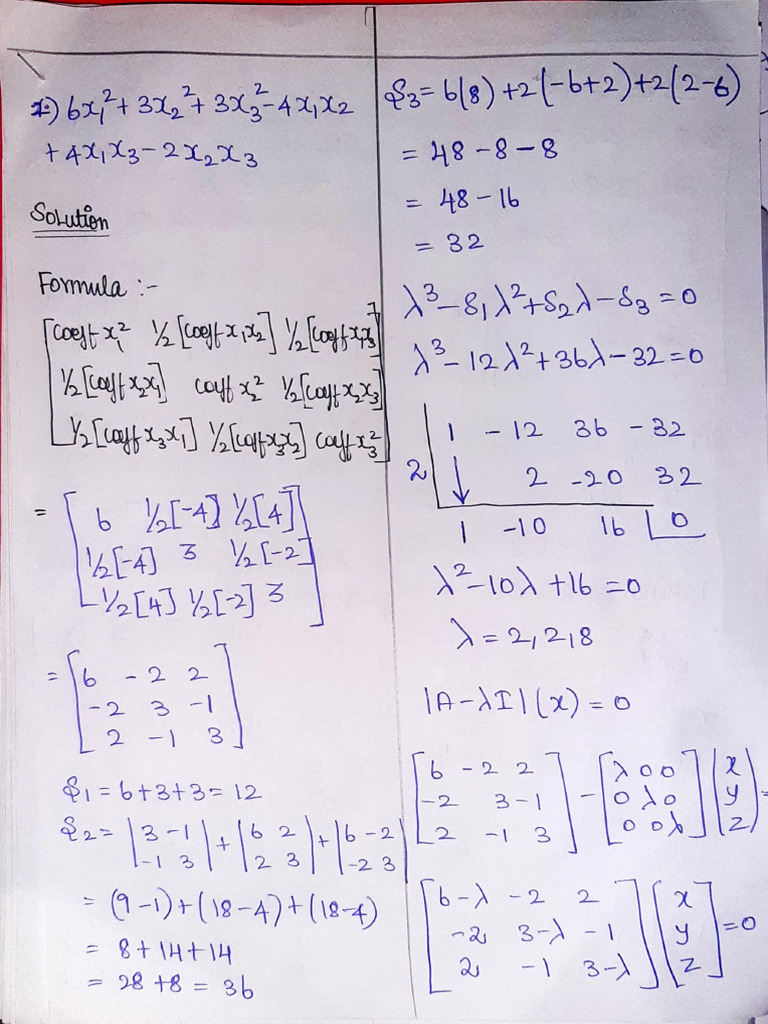 7.) 6x₁² + 3x₂² + 3x₃² - 4x₁x₂
+ 4x₁x₃ - 2x₂x₃
Solution
Formula :-
[coeff x₁² ½[coeff x₁x₂] ½[coeff x₁x₃]
½[coeff x₂x₁] coeff x₂² ½[coeff x₂x₃]
½[coeff x₃x₁] ½[coeff x₃x₂] coeff x₃²]
= [6 ½[-4] ½[4]
½[-4] 3 ½[-2]
½[4] ½[-2] 3]
= [6 -2 2
-2 3 -1
2 -1 3]
S₁ = 6+3+3 = 12
S₂ = |3 -1| + |6 2| + |6 -2|
|-1 3| |2 3| |-2 3|
= (9-1) + (18-4) + (18-4)
= 8 + 14 + 14
= 28 + 8 = 36
S₃ = 6(8) + 2(-6+2) + 2(2-6)
= 48 - 8 - 8
= 48 - 16
= 32
λ³ - S₁λ² + S₂λ - S₃ = 0
λ³ - 12λ² + 36λ - 32 = 0
1 -12 36 -32
2 ↓ 2 -20 32
1 -10 16 0
λ² - 10λ + 16 = 0
λ = 2, 2, 8
|A - λI| (x) = 0
[6 -2 2] - [λ 0 0] (x
[-2 3 -1] [0 λ 0] y =
[2 -1 3] [0 0 λ] z)
[6-λ -2 2] [x]
[-2 3-λ -1] [y] = 0
[2 -1 3-λ] [z]